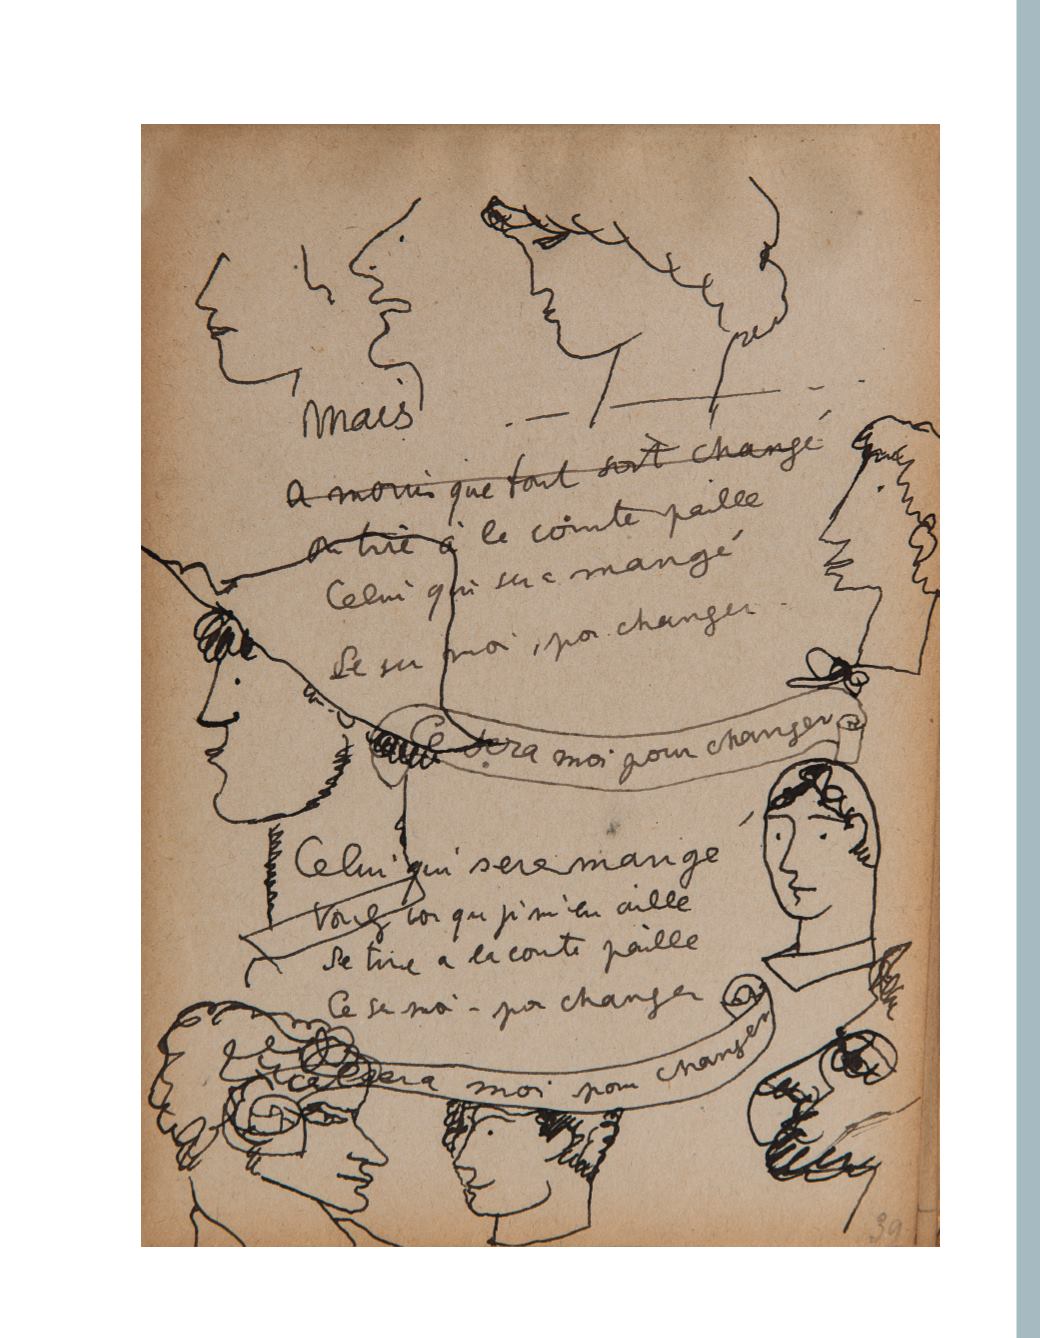 Mais
a moins que tout soit changé
on tire à la courte paille
Celui qui sera mangé
Ce ser moi, por changer
Ce sera moi pour changer
Celui qui sera mange
Voulez vous que je m'en aille
Se tire a la courte paille
Ce se moi - por changer
Ce sera moi pour changer
39